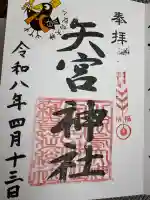 奉拝
矢宮神社
令和八年四月十三日